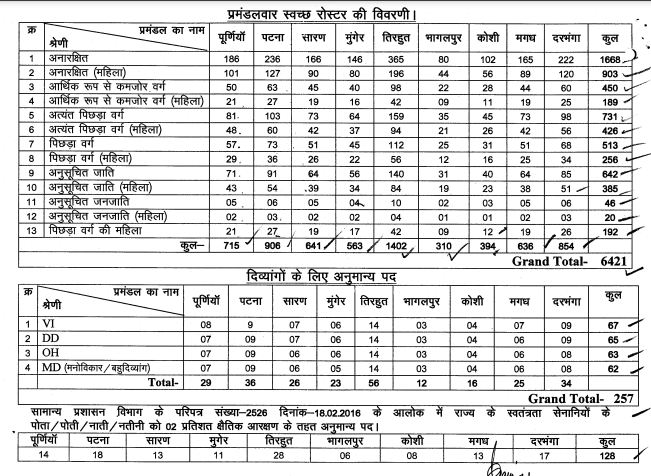 प्रमंडलवार स्वच्छ रोस्टर की विवरणी।
क्र प्रमंडल का नाम श्रेणी पूर्णियाँ पटना सारण मुंगेर तिरहुत भागलपुर कोशी मगध दरभंगा कुल
1 अनारक्षित 186 236 166 146 365 80 102 165 222 1668
2 अनारक्षित (महिला) 101 127 90 80 196 44 56 89 120 903
3 आर्थिक रूप से कमजोर वर्ग 50 63 45 40 98 22 28 44 60 450
4 आर्थिक रूप से कमजोर वर्ग (महिला) 21 27 19 16 42 09 11 19 25 189
5 अत्यंत पिछड़ा वर्ग 81 103 73 64 159 35 45 73 98 731
6 अत्यंत पिछड़ा वर्ग (महिला) 48 60 42 37 94 21 26 42 56 426
7 पिछड़ा वर्ग 57 73 51 45 112 25 31 51 68 513
8 पिछड़ा वर्ग (महिला) 29 36 26 22 56 12 16 25 34 256
9 अनुसूचित जाति 71 91 64 56 140 31 40 64 85 642
10 अनुसूचित जाति (महिला) 43 54 39 34 84 19 23 38 51 385
11 अनुसूचित जनजाति 05 06 05 04 10 02 03 05 06 46
12 अनुसूचित जनजाति (महिला) 02 03 02 02 04 01 01 02 03 20
13 पिछड़ा वर्ग की महिला 21 27 19 17 42 09 12 19 26 192
कुल– 715 906 641 563 1402 310 394 636 854
Grand Total- 6421
दिव्यांगों के लिए अनुमान्य पद
क्र प्रमंडल का नाम श्रेणी पूर्णियाँ पटना सारण मुंगेर तिरहुत भागलपुर कोशी मगध दरभंगा कुल
1 VI 08 9 07 06 14 03 04 07 09 67
2 DD 07 09 07 06 14 03 04 06 09 65
3 OH 07 09 06 06 14 03 04 06 08 63
4 MD (मनोविकार/बहुदिव्यांग) 07 09 06 05 14 03 04 06 08 62
Total- 29 36 26 23 56 12 16 25 34
Grand Total- 257
सामान्य प्रशासन विभाग के परिपत्र संख्या-2526 दिनांक-18.02.2016 के आलोक में राज्य के स्वतंत्रता सेनानियों के
पोता/पोती/नाती/नतीनी को 02 प्रतिशत क्षैतिज आरक्षण के तहत अनुमान्य पद।
पूर्णियाँ पटना सारण मुगेर तिरहुत भागलपुर कोशी मगध दरभंगा कुल
14 18 13 11 28 06 08 13 17 128